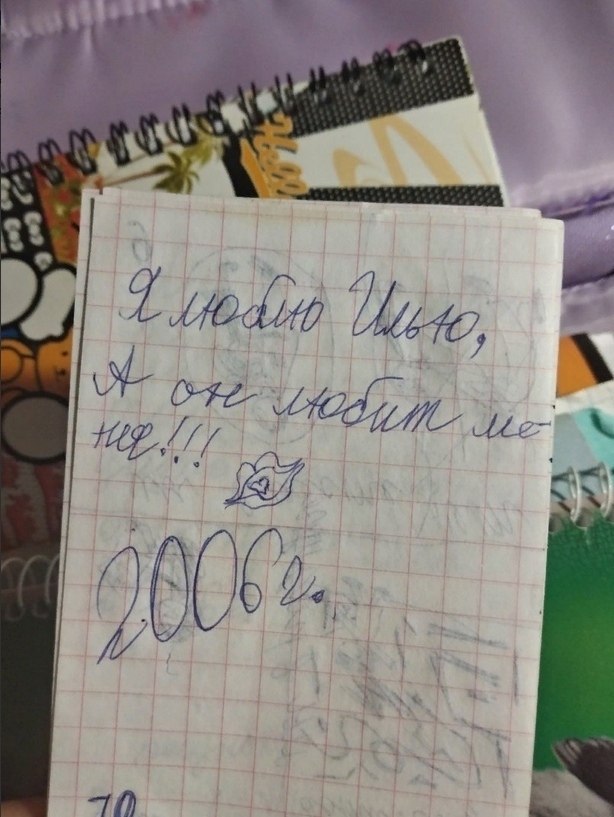 Я люблю Илью,
А он любит ме-
ня!!!
2006 г.